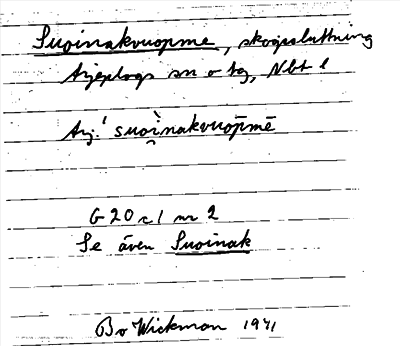 Suoinakvuopme, skogssluttning
Arjeplogs sn o tg, Nbt l
Arj. suoi̯nakvuōpmē
G 20 c 1 nr 2
Se även Suoinak
Bo Wickman 1971